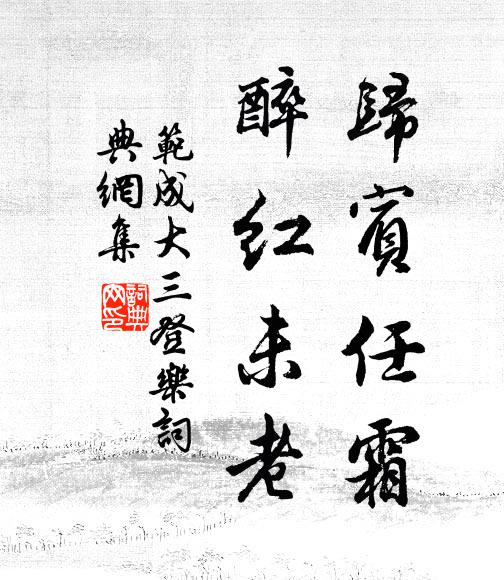 歸賓任霜
醉紅未老
範成大三登樂詞
典網集
詞典網印